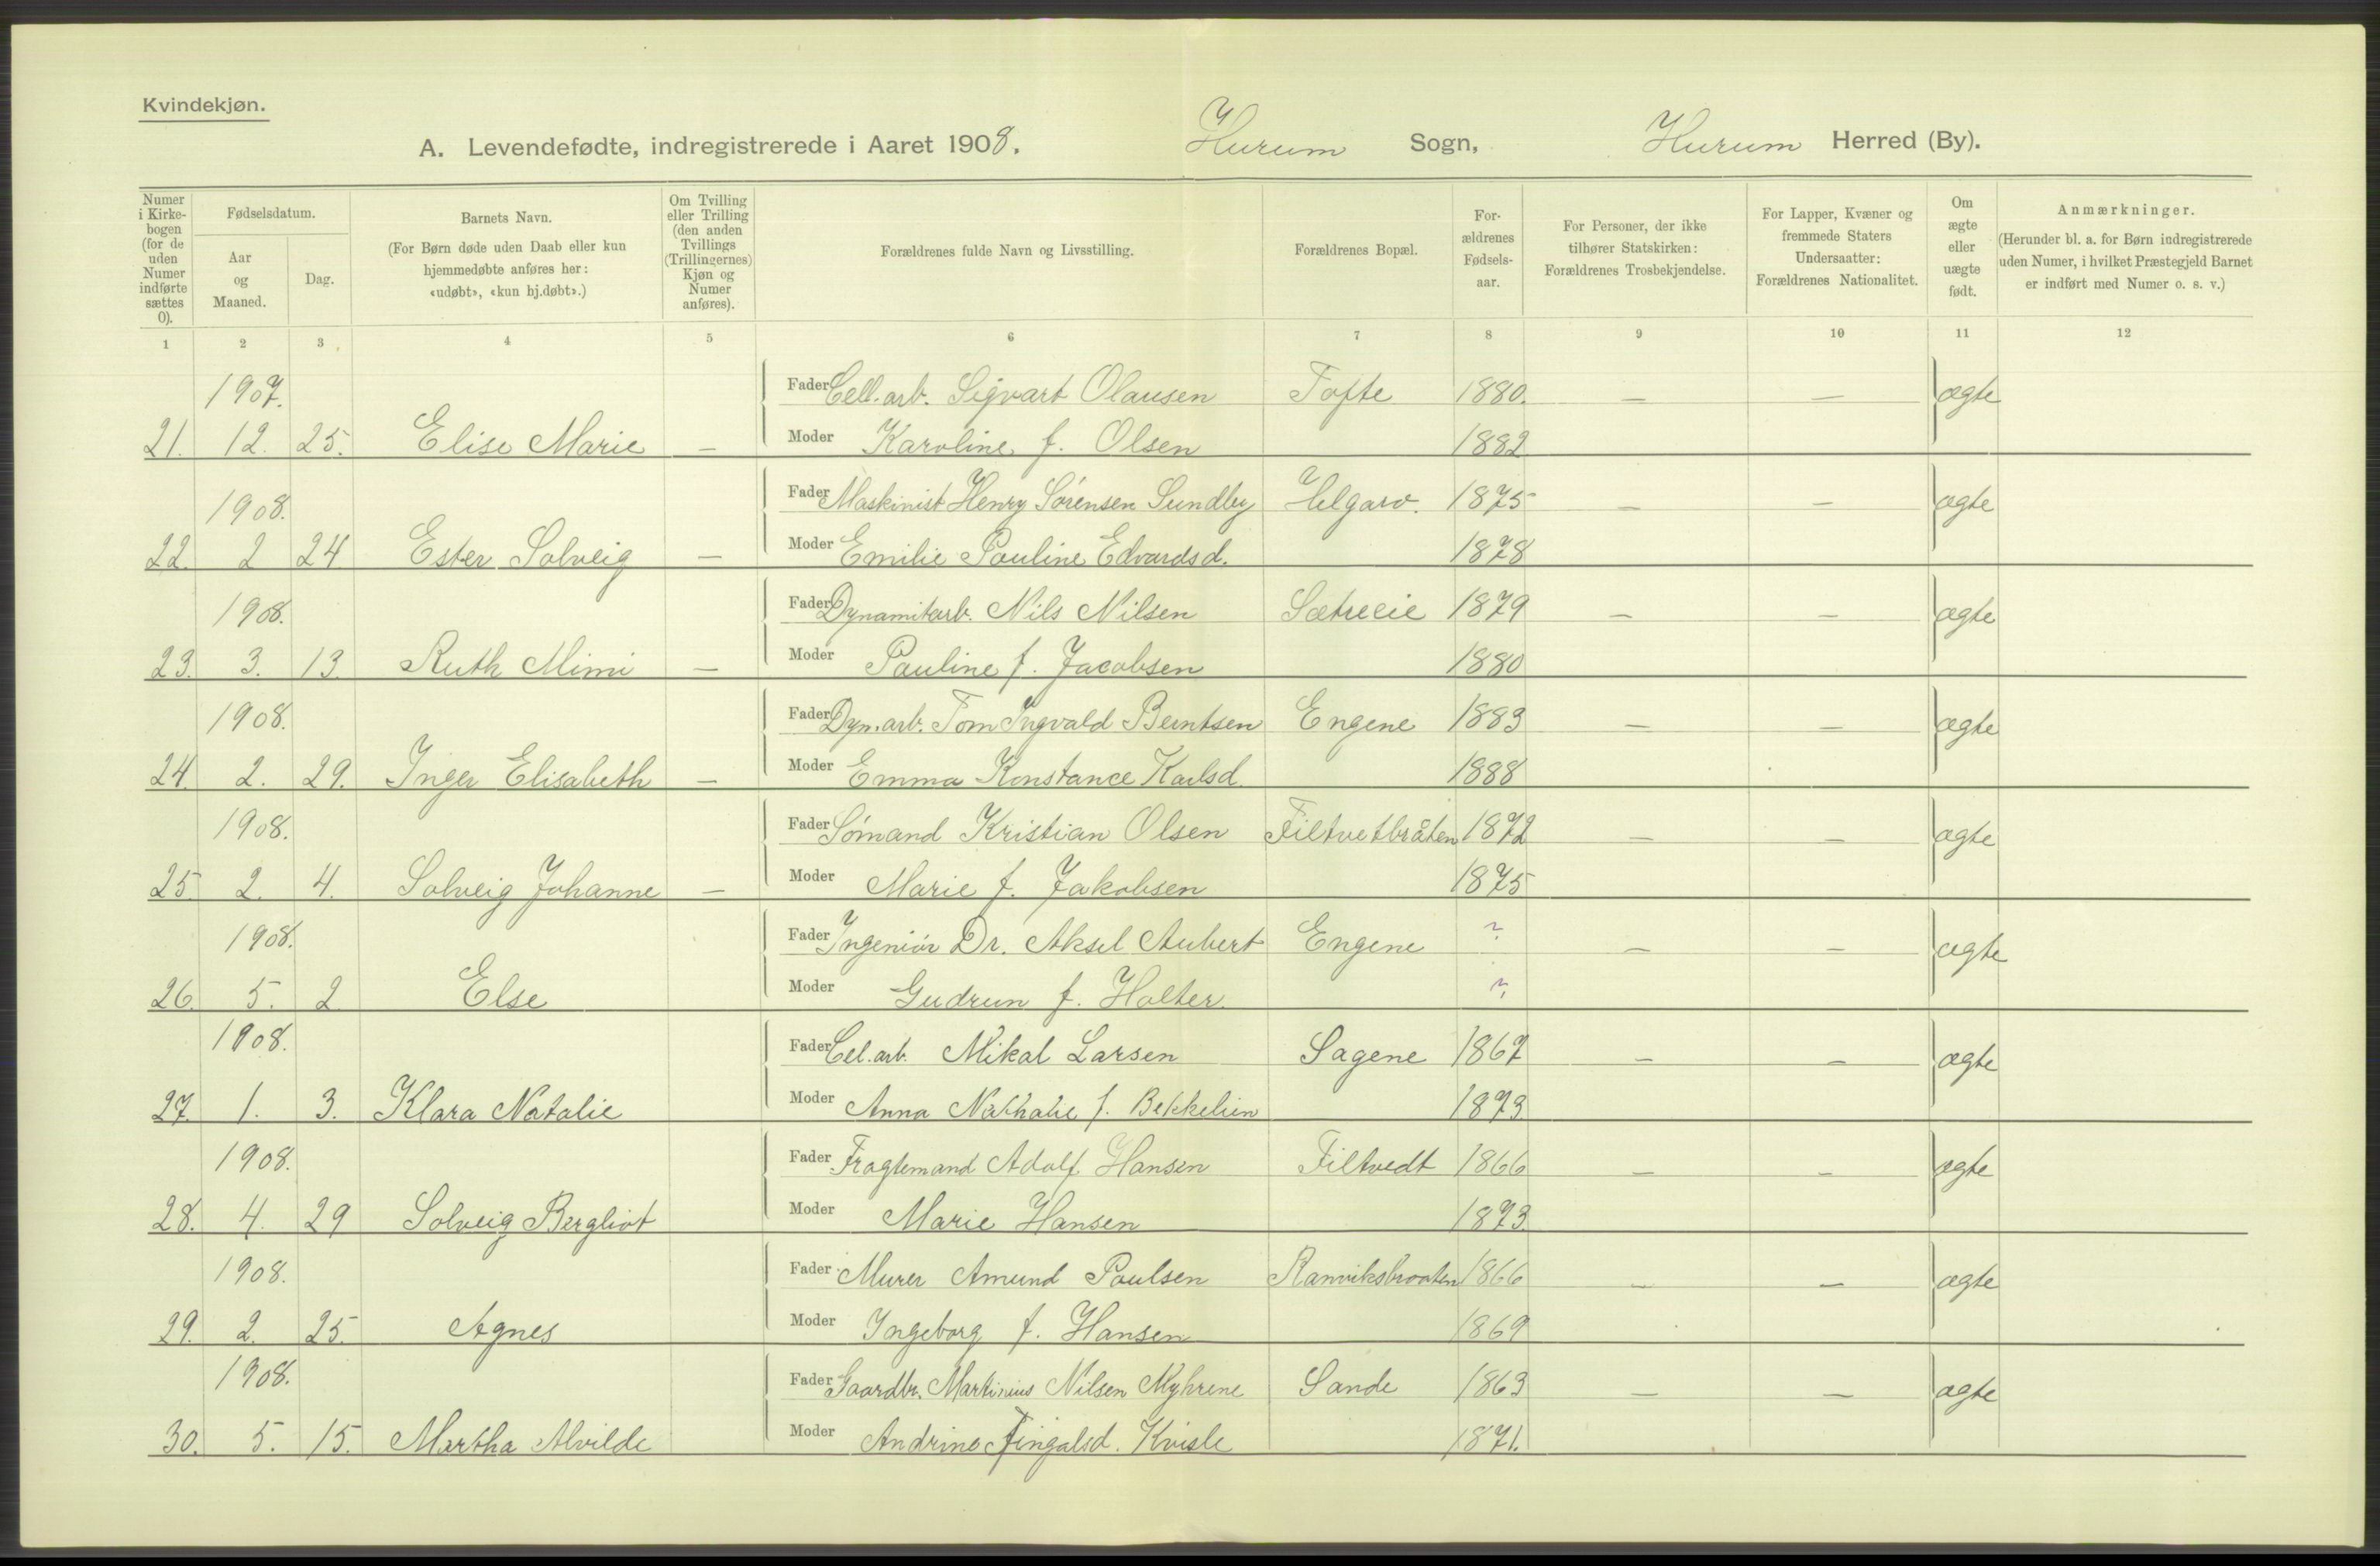 Kvindekjøn.
A. Levendefødte, indregistrerede i Aaret 1908. Hurum Sogn, Hurum Herred (By).
Numer i Kirke- bogen (for de uden Numer indførte sættes 0).
Fødselsdatum.
Aar og Maaned.
Dag.
Barnets Navn.
(For Børn døde uden Daab eller kun hjemmedøbte anføres her: «udøbt», «kun hj.døbt».)
Om Tvilling eller Trilling (den anden Tvillings (Trillingernes) Kjøn og Numer anføres).
Forældrenes fulde Navn og Livsstilling.
Forældrenes Bopæl.
For- ældrenes Fødsels- aar.
For Personer, der ikke tilhører Statskirken: Forældrenes Trosbekjendelse.
For Lapper, Kvæner og fremmede Staters Undersaatter: Forældrenes Nationalitet.
Om ægte eller uægte født.
Anmærkninger.
(Herunder bl. a. for Børn indregistrerede uden Numer, i hvilket Præstegjeld Barnet er indført med Numer o. s. v.)
1 2 3 4 5 6 7 8 9 10 11 12
1907. Fader Cell. arb. Sigvart Olausen Tofte 1880. — — ægte
21. 12. 25. Elise Marie — Moder Karoline f. Olsen 1882
1908. Fader Maskinist Henry Sørensen Sundby 1875 — — ægte
22. 2 24 Ester Solveig — Moder Emilie Pauline Edvardsd. 1878
1908. Fader Dynamitarb. Nils Nilsen Sætreeie 1879 — — ægte
23. 3. 13. Ruth Mimi — Moder Pauline f. Jacobsen 1880
1908. Fader Dyn. arb. Tom Ingvald Berntsen Engene 1883 — — ægte
24. 2. 29. Inger Elisabeth — Moder Emma Konstance Karlsd. 1888
1908. Fader Sømand Kristian Olsen Filtvetbråten 1872 — — ægte
25 2. 4. Solveig Johanne — Moder Marie f. Jakobsen 1875
1908. Fader Ingeniør Dr. Aksel Aubert Engene ? — — ægte
26. 5. 2 Else Moder Gudrun f. Holter. ?
1908. Fader Cel. arb. Mikal Larsen Sagene 1867 — — ægte
27. 1. 3. Klara Natalie Moder Anna Nathalie f. Bekkelien 1873
1908. Fader Fragtemand Adolf Hansen Filtvedt 1866 — — ægte
28. 4. 29 Solveig Bergliot Moder Marie Hansen 1873
1908. Fader Murer Amund Paulsen Ranviksbraaten 1866 — — ægte
29. 2. 25. Agnes Moder Ingeborg f. Hansen 1869
1908. Fader Gaardbr. Martinius Nilsen Myhrene Sande 1863 — — ægte
30. 5. 15. Martha Alvilde Moder Andrine Fingalsd. Kvisle 1871.